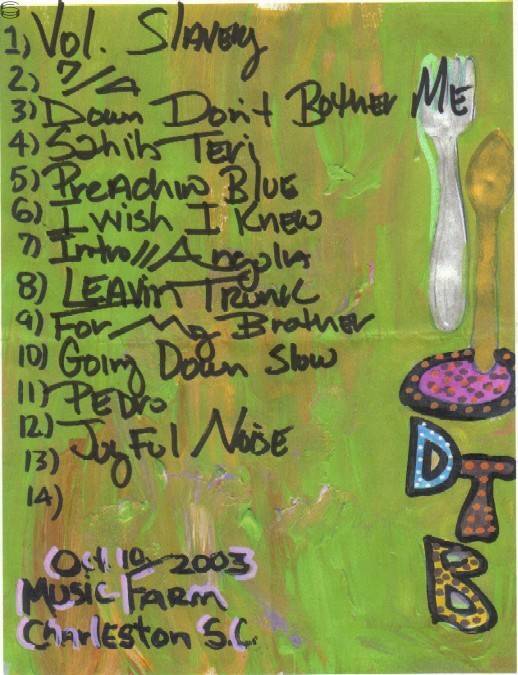 1) Vol. Slavery
2) 7/4
3) Down Don't Bother Me
4) Sahib Teri
5) Preachin Blue
6) I wish I Knew
7) Intro//Angola
8) Leavin Trunk
9) For My Brother
10) Going Down Slow
11) Pedro
12) Joyful Noise
13)
14)
DTB
Oct. 10 2003
Music Farm
Charleston S.C.